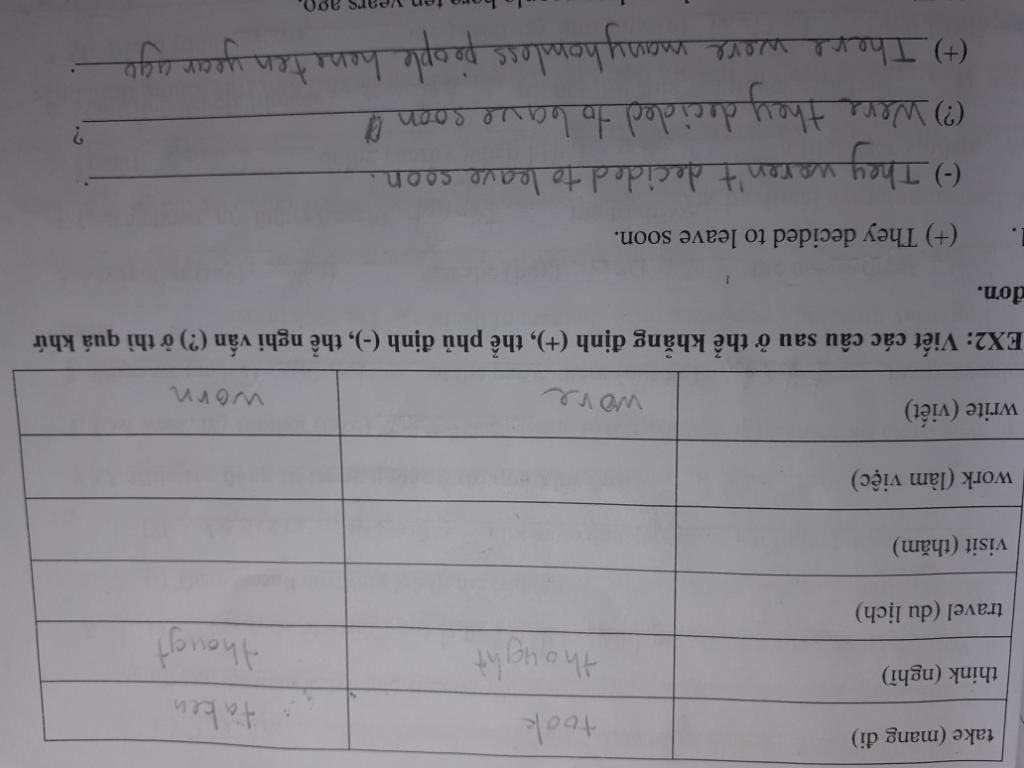 take (mang đi) took taken
think (nghĩ) thought thougt
travel (du lịch)
visit (thăm)
work (làm việc)
write (viết) wore worn
EX2: Viết các câu sau ở thể khẳng định (+), thể phủ định (-), thể nghi vấn (?) ở thì quá khứ
đơn.
1. (+) They decided to leave soon.
(-) They waren't decided to leave soon.
(?) Were they decided to leave soon ?
(+) There were many homless people here ten year ago.
people here ten years ago.